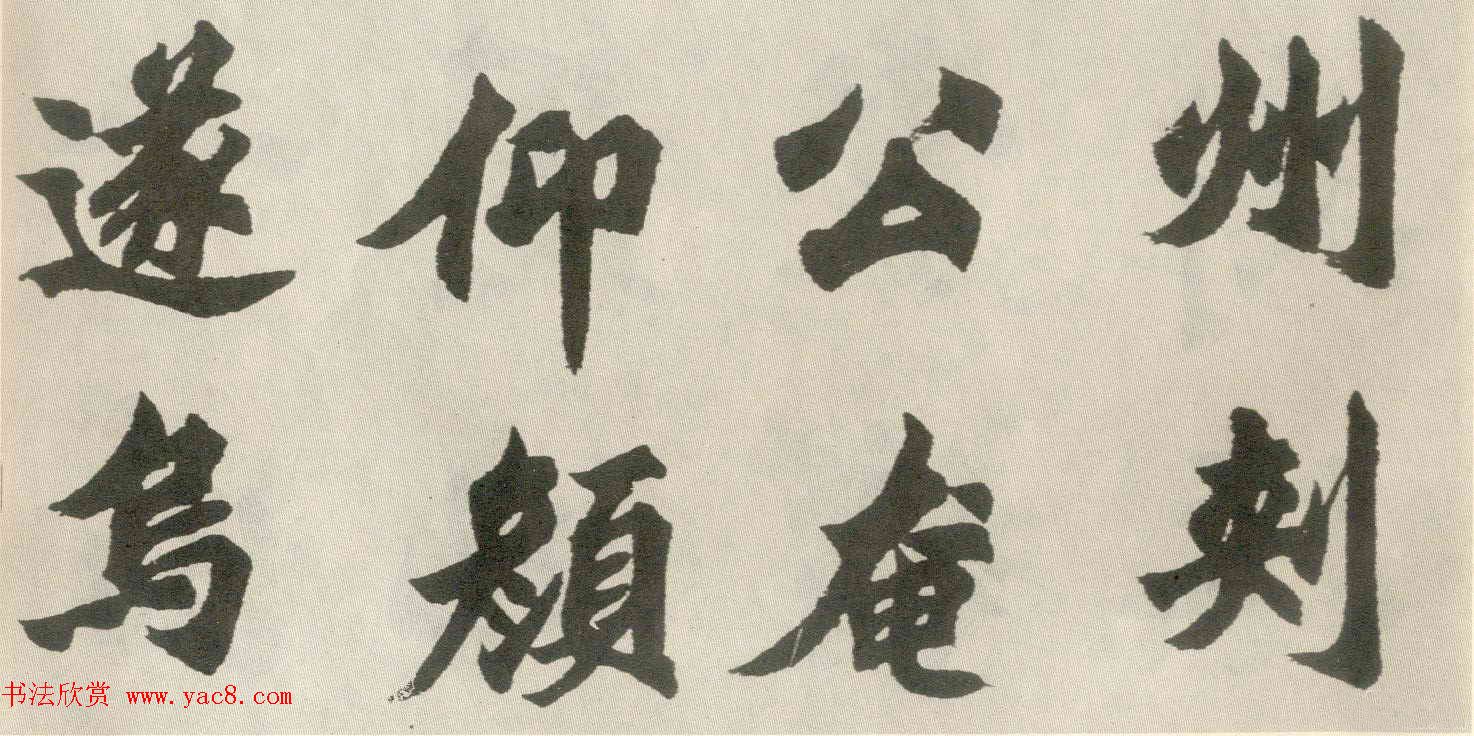 州刺
公奄
仰
遂
书法欣赏 www.yac8.com